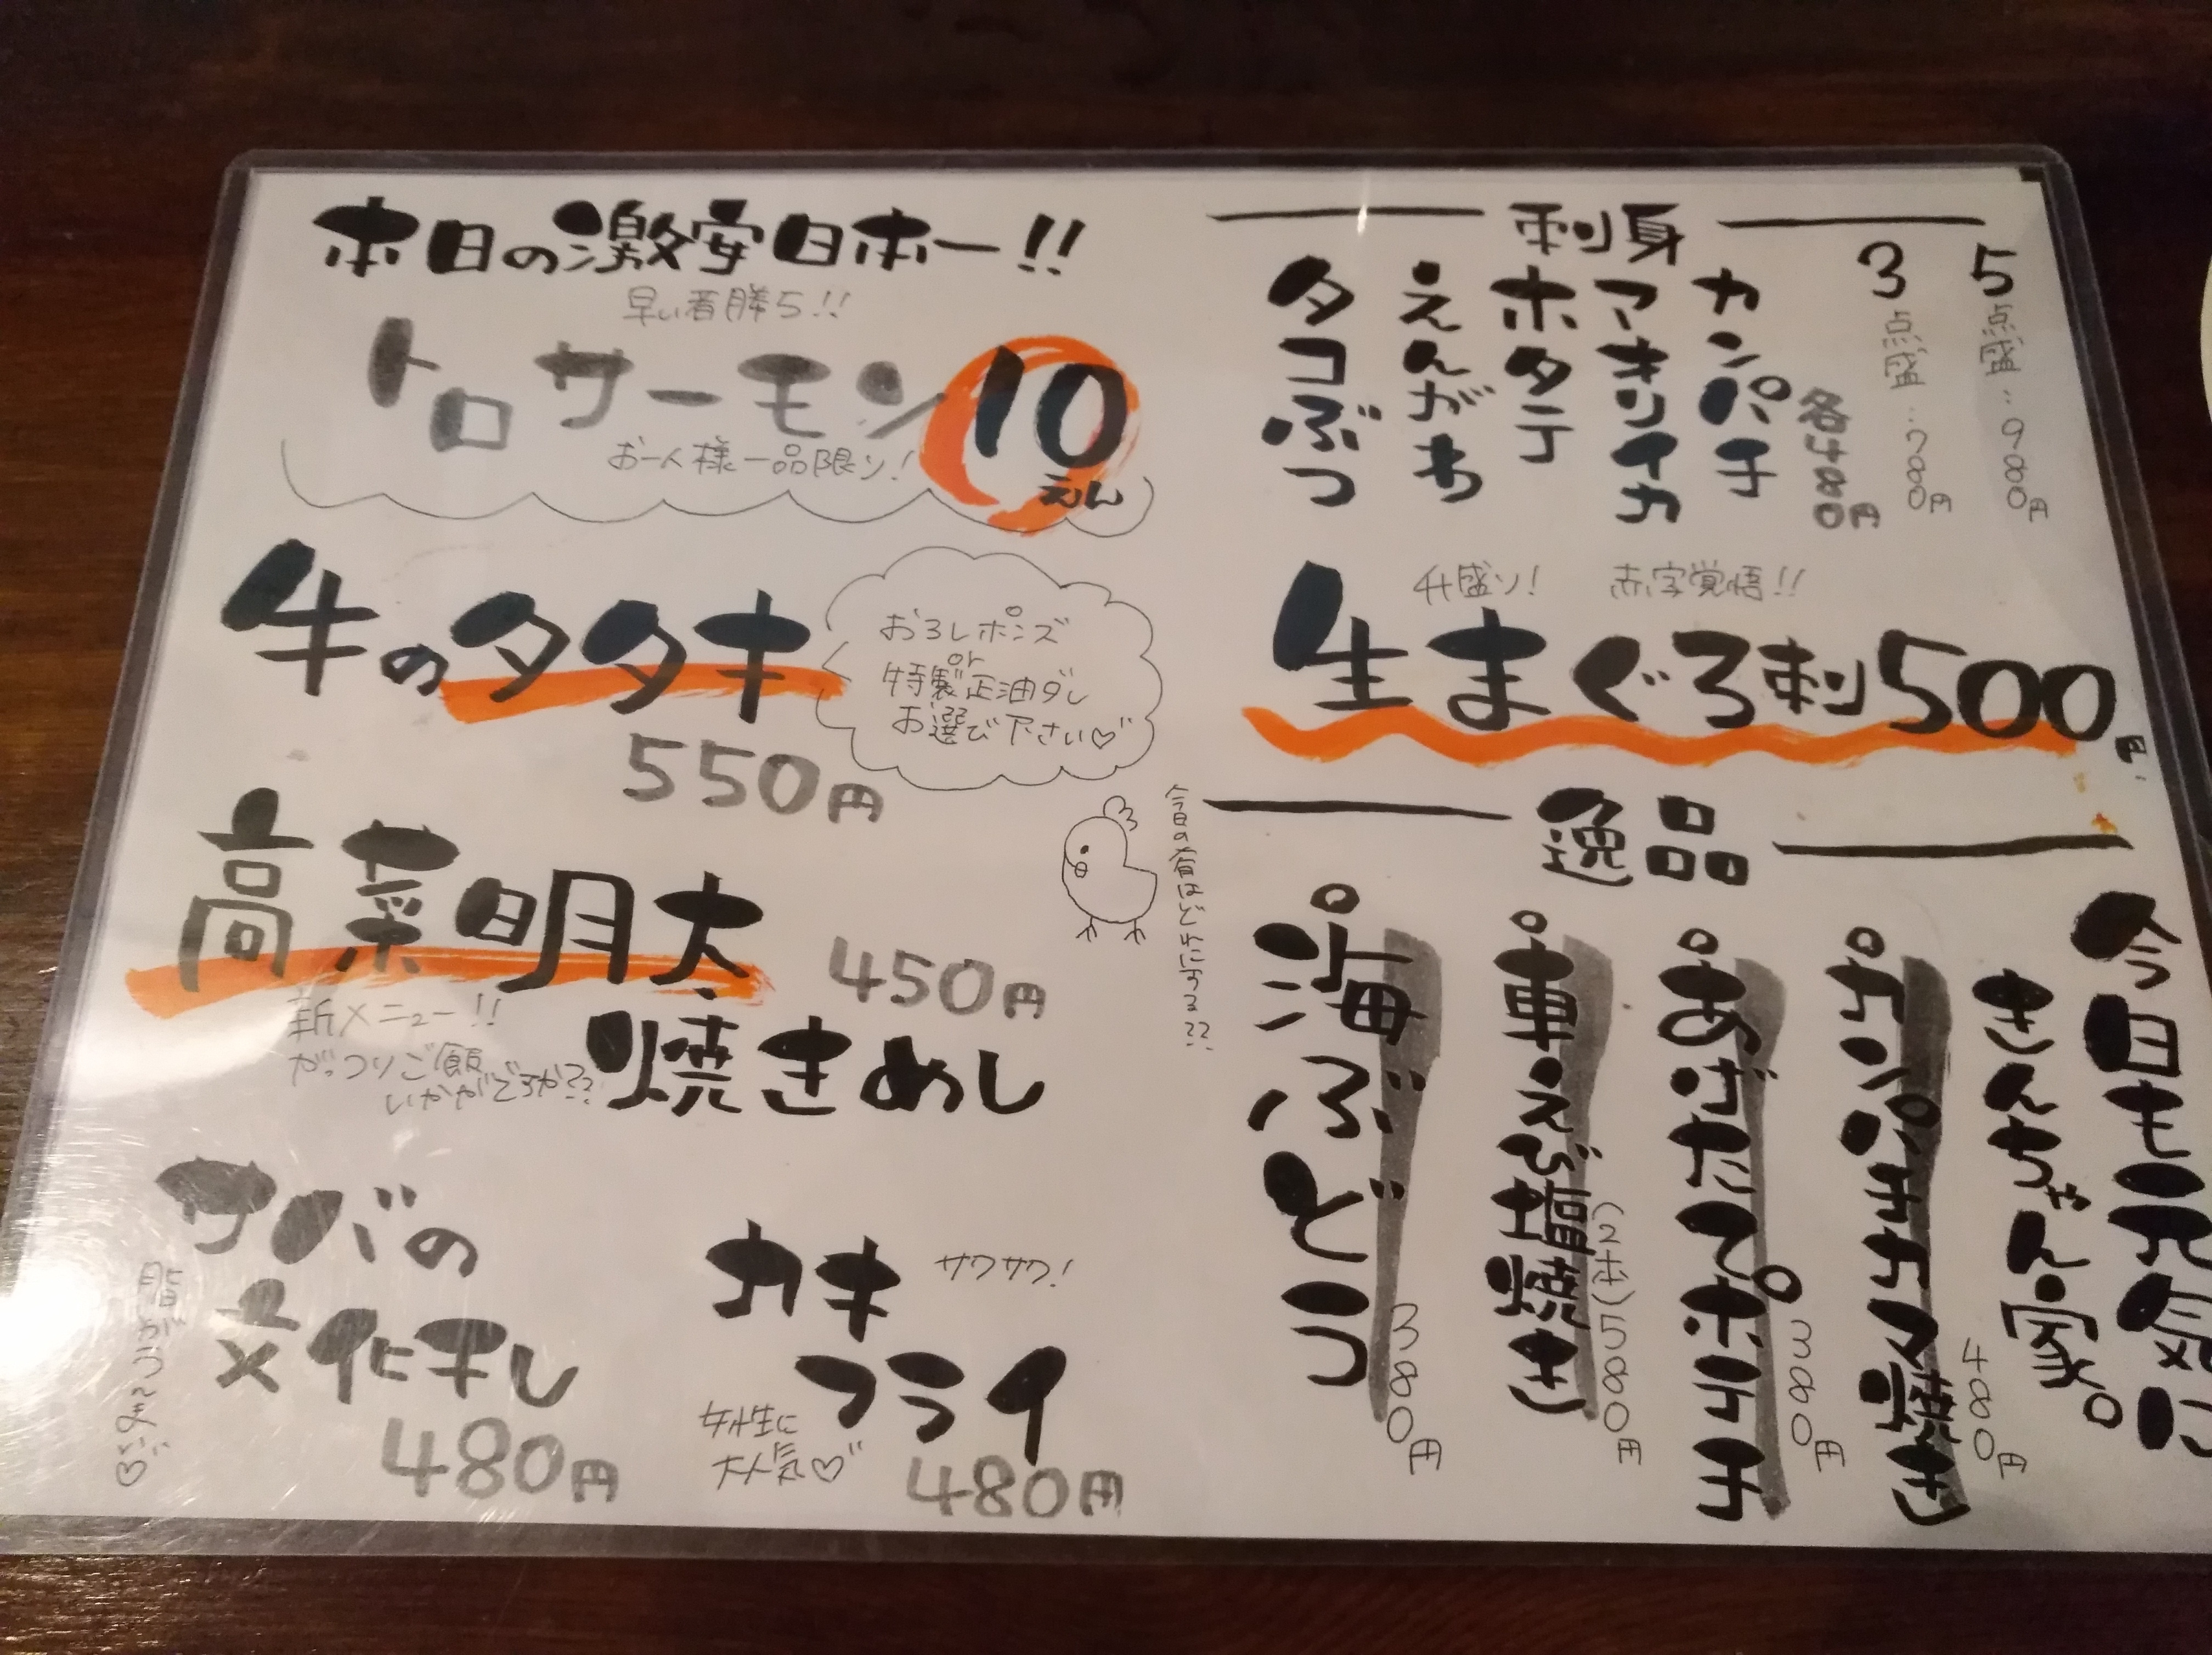 本日の激安日本一!!
早い者勝ち!!
トロサーモン10えん
お一人様一品限り!
牛のタタキ
550円
おろしポンズ
or
特製正油ダレ
お選び下さい♡
高菜明太
450円
焼きめし
新メニュー!!
がっつりご飯
いかがですか??
サバの
文化干し
480円
カキ
サクサク!
フライ
女性に
大人気♡
480円
今日の肴はどれにする??
刺身
5点盛‥980円
3点盛‥780円
各480円
カンパチ
アオリイカ
ホタテ
えんがわ
タコぶつ
升盛り!
赤字覚悟!!
生まぐろ刺500円
逸品
今日も元気に
きんちゃん家。
カンパチカマ焼き
480円
あげたてポテチ
380円
車えび塩焼き
(2本)580円
海ぶどう
380円